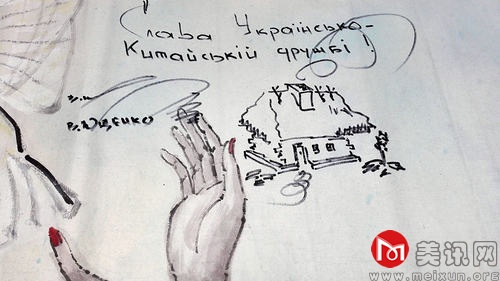 Слава Українсько-
Китайській дружбі!
美讯网
www.meixun.org